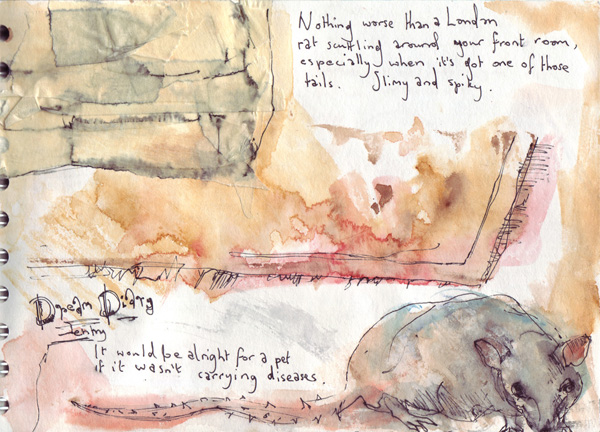 Nothing worse than a London
rat scuttling around your front room,
especially when it's got one of those
tails. Slimy and spiky.
Dream Diary
Jenny
It would be alright for a pet
if it wasn't carrying diseases.